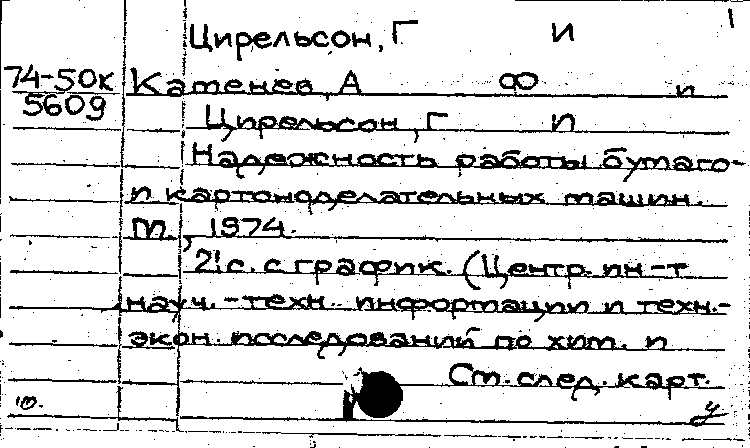 1
Цирельсон, Г И
74-50к Катенев, А Ф и
5609
Цирельсон, Г И
Надежность работы бумаго-
и картоноделательных машин.
М., 1974.
21 с. с график. (Центр. ин-т
науч.-техн. информации и техн.-
экон. исследований по хим. и
См. след. карт.
ю. у